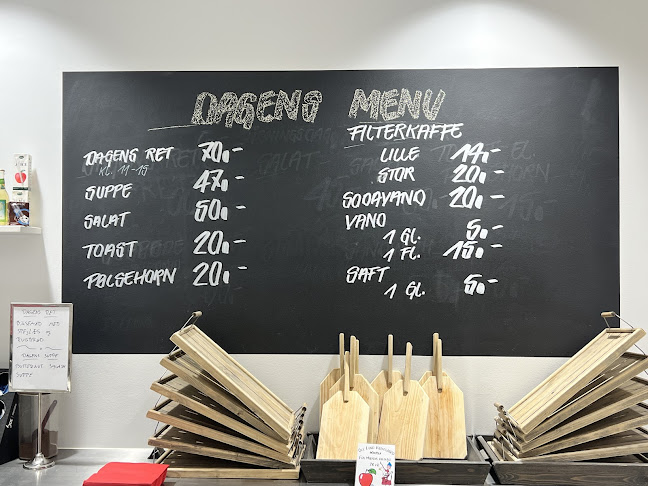 DAGENS MENU
DAGENS RET 70,-
KL. 11-15
SUPPE 47,-
SALAT 50,-
TOAST 20,-
PØLSEHORN 20,-
FILTERKAFFE
LILLE 14,-
STOR 20,-
SODAVAND 20,-
VAND
1 GL. 5,-
1 FL. 15,-
SAFT
1 GL. 5,-
DAGENS RET
DAGENS SUPPE
SUPPE